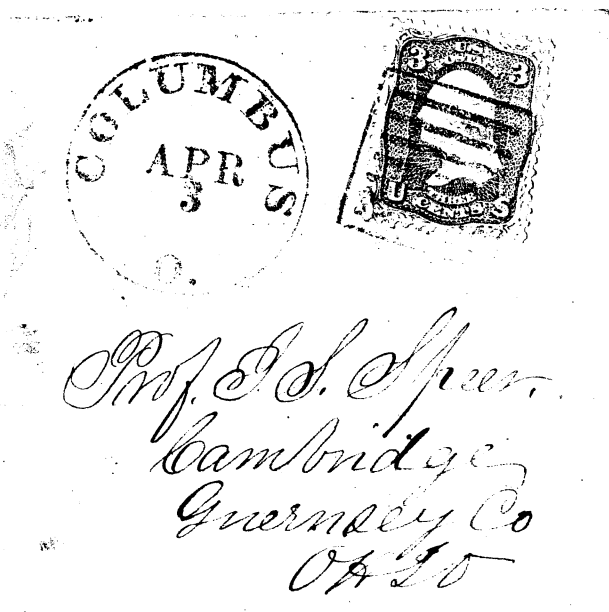 COLUMBUS
APR
3
O.
3 U.S. 3
U CENTS S
Prof. J. S. Speer.
Cambridge
Guernsey Co
OHIO